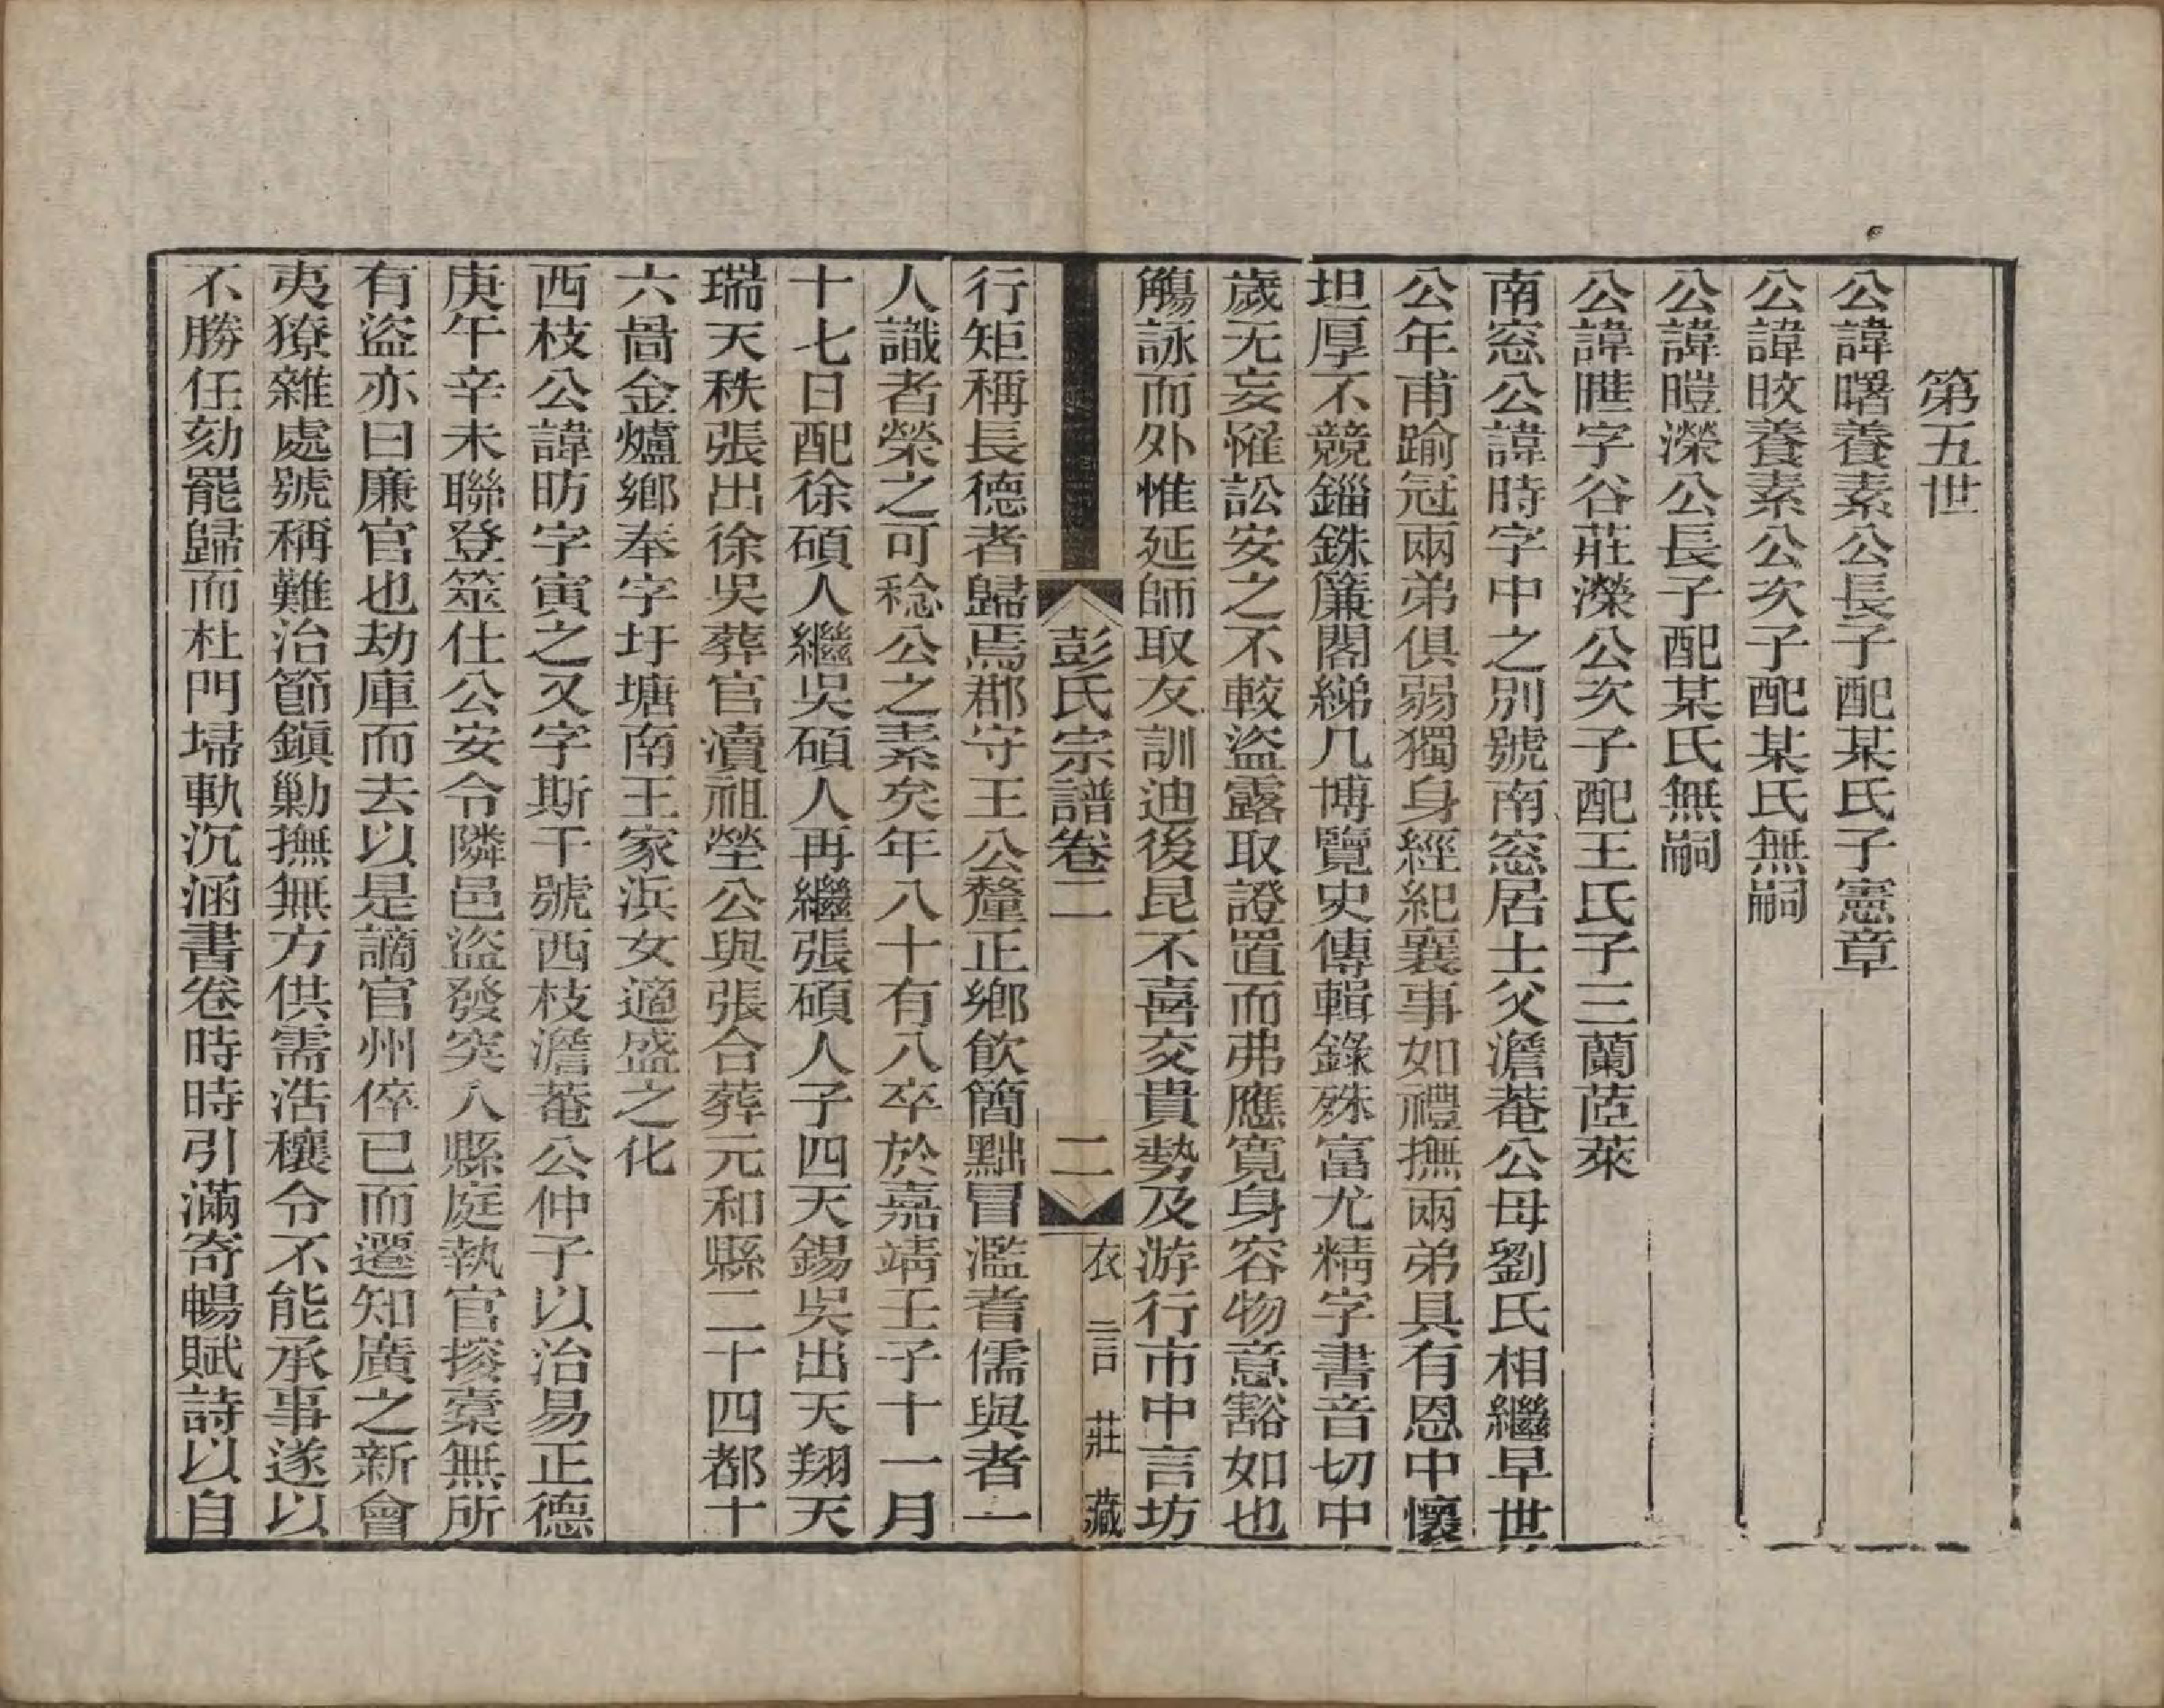 第五世
公諱曙養素公長子配某氏子憲章
公諱旼養素公次子配某氏無嗣
公諱暟濚公長子配某氏無嗣
公諱暀字谷莊濚公次子配王氏子三蘭茝萊
南窓公諱時字中之別號南窓居士父澹菴公母劉氏相繼早世
公年甫踰冠兩弟俱弱獨身經紀襄事如禮撫兩弟具有恩中懷
坦厚不競錙銖簾閣綈几博覽史傳輯錄殊富尤精字書音切中
歲无妄惟訟安之不較盜露取證置而弗應寬身容物意豁如也
觴詠而外惟延師取友訓迪後昆不喜交貴勢及游行市中言坊
彭氏宗譜卷二 二 衣言莊藏
行矩稱長德者歸焉郡守王公釐正鄉飲簡黜冒濫耆儒與者一
人識者榮之可稔公之素矣年八十有八卒於嘉靖壬子十一月
十七日配徐碩人繼吳碩人再繼張碩人子四天錫吳出天翔天
瑞天秩張出徐吳葬官瀆祖塋公與張合葬元和縣二十四都十
六啚金爐鄉奉字圩塘南王家浜女適盛之化
西枝公諱昉字寅之又字斯干號西枝澹菴公仲子以治易正德
庚午辛未聯登筮仕公安令隣邑盜發突入縣庭執官搜槖無所
有盜亦曰廉官也劫庫而去以是謫官州倅已而遷知廣之新會
夷獠雜處號稱難治節鎮勦撫無方供需浩穰令不能承事遂以
不勝任劾罷歸而杜門埽軌沉涵書卷時時引滿寄暢賦詩以自